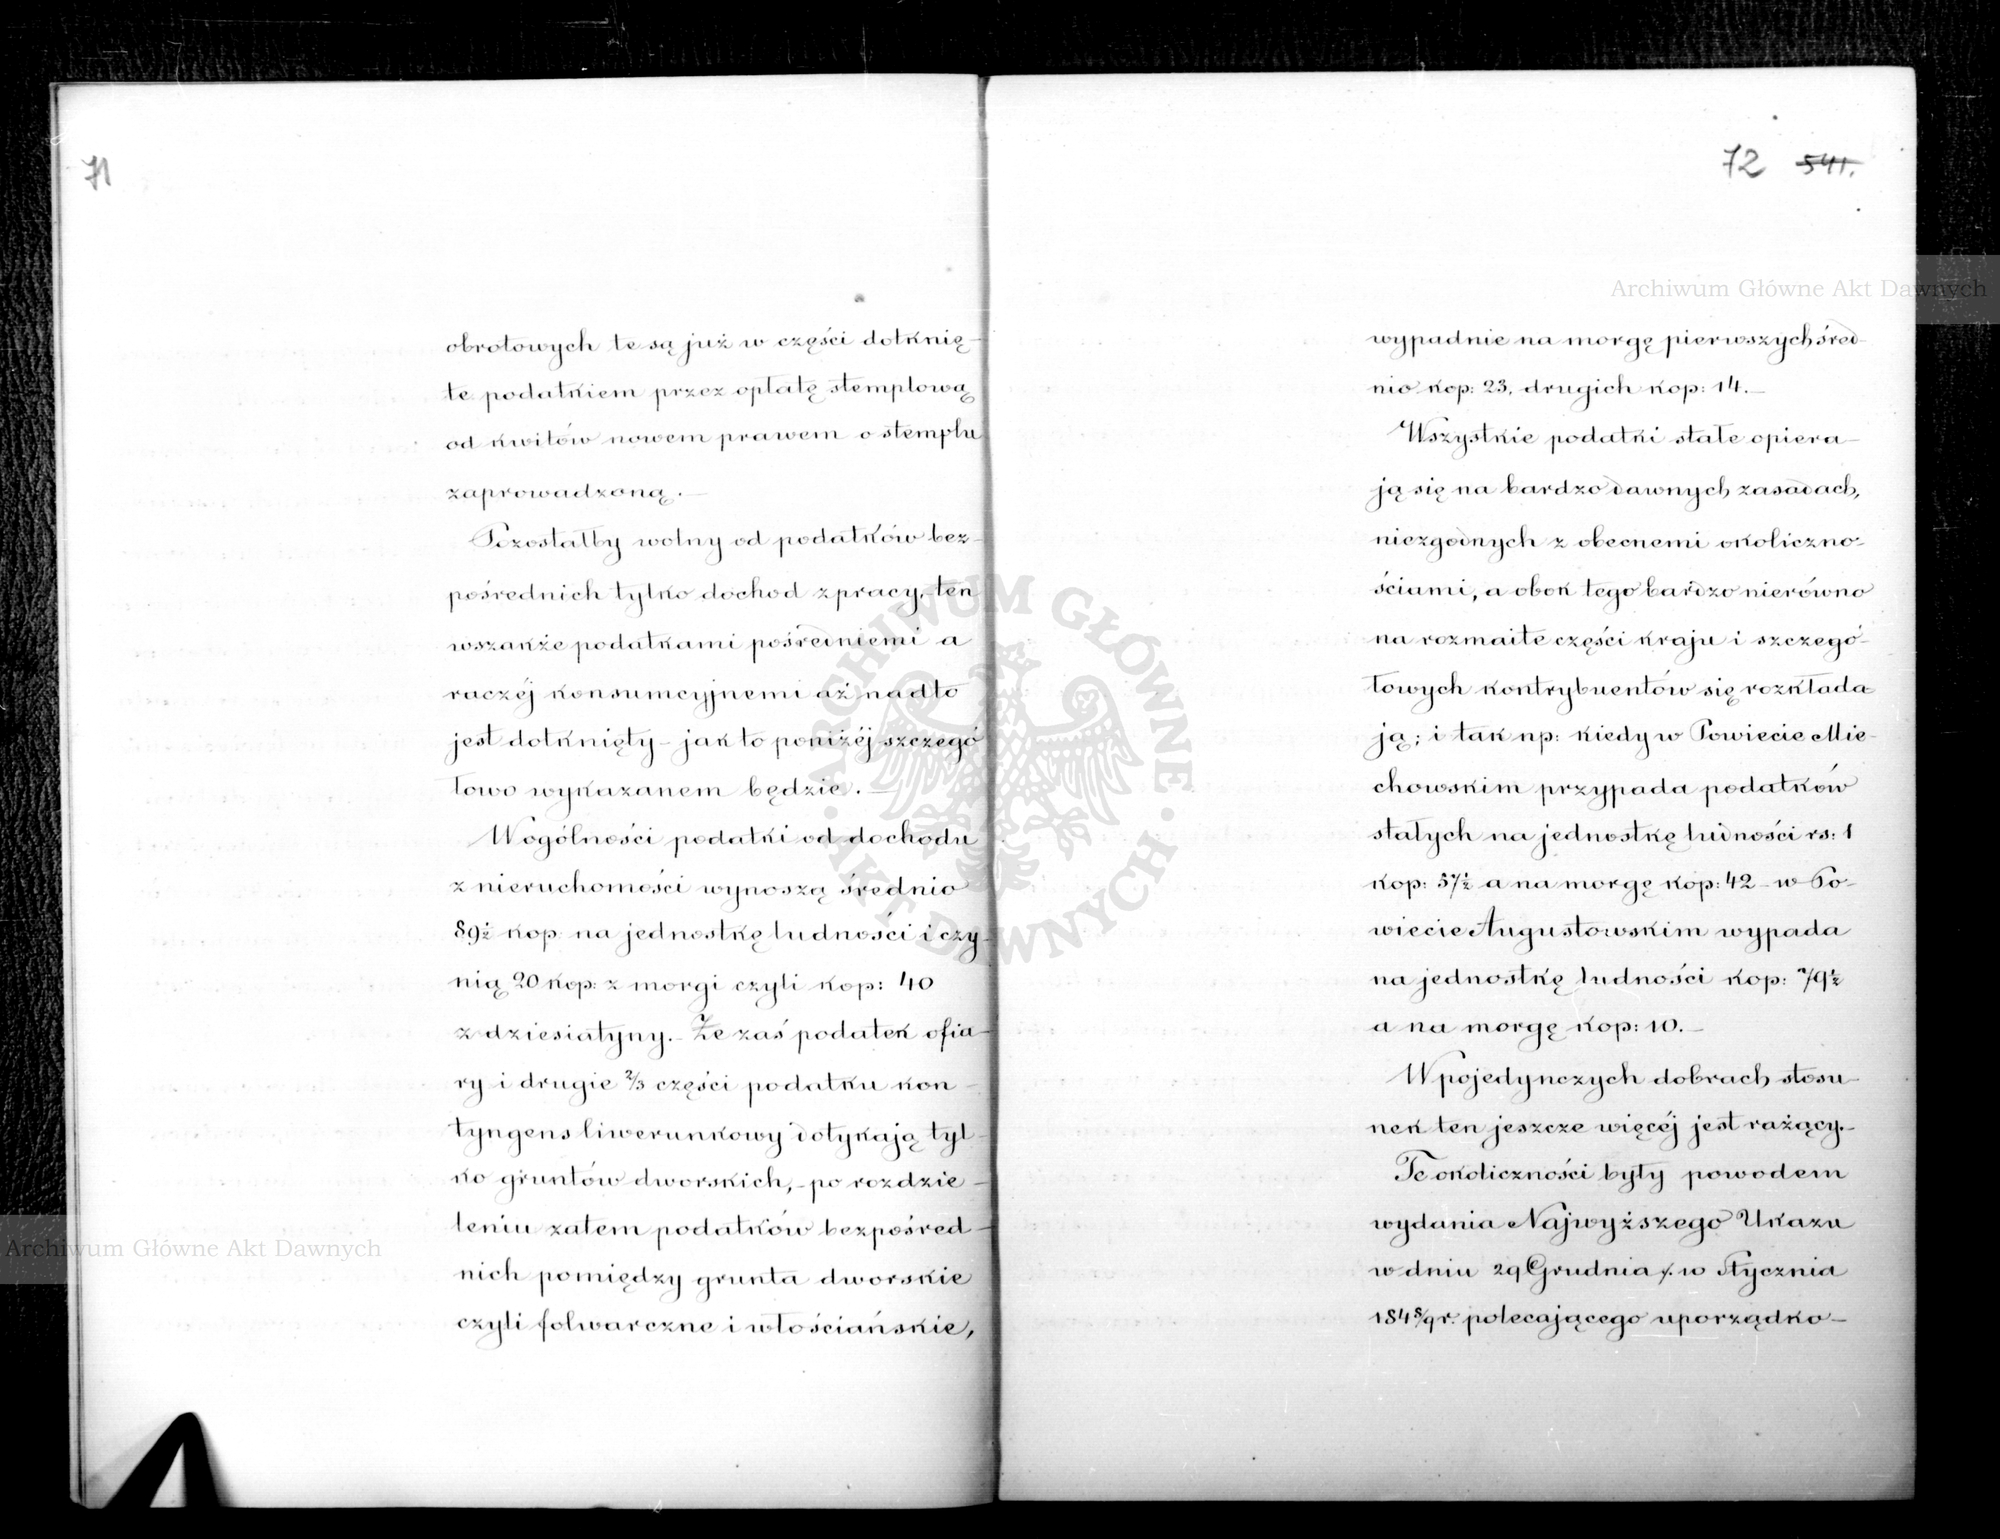 71
obrotowych te są już w części dotknię-
te podatkiem przez opłatę stemplową
od kwitów nowem prawem o stemplu
zaprowadzoną.—
Pozostałby wolny od podatków bez-
pośrednich tylko dochod z pracy,-ten
wszakże podatkami pośredniemi a
raczéj konsumcyjnemi aż nadto
jest dotknięty – jak to poniżéj szczegó
łowo wykazanem będzie.—
Wogólności podatki od dochodu
z nieruchomości wynoszą średnio
89½ kop: na jednostkę ludności i czy-
nią 20 kop: z morgi czyli kop: 40
z dziesiatyny.- Że zaś podatek ofia-
ry i drugie ⅔ części podatku kon-
tyngens liwerunkowy dotykają tyl-
ko gruntów dworskich,- po rozdzie-
leniu zatem podatków bezpośred-
nich pomiędzy grunta dworskie
czyli folwarczne i włościańskie,
72 541.
wypadnie na morgę pierwszych śred-
nio kop: 23, drugich kop: 14.—
Wszystkie podatki stałe opiera-
ją się na bardzo dawnych zasadach,
niezgodnych z obecnemi okoliczno-
ściami, a obok tego bardzo nierówno
na rozmaite części kraju i szczegó-
łowych kontrybuentów się rozkłada-
ją; i tak np: kiedy w Powiecie Mie-
chowskim przypada podatków
stałych na jednostkę ludności rs: 1
kop: 57½ a na morgę kop: 42 – w Po-
wiecie Augustowskim wypada
na jednostkę ludności kop: 79½
a na morgę kop: 10.—
W pojedynczych dobrach stosu-
nek ten jeszcze więcéj jest rażący.—
Te okoliczności były powodem
wydania Najwyższego Ukazu
w dniu 29 Grudnia /. w Stycznia
1848/9 r. polecającego uporządko-
Archiwum Główne Akt Dawnych
Archiwum Główne Akt Dawnych
· ARCHIWUM GŁÓWNE · AKT DAWNYCH